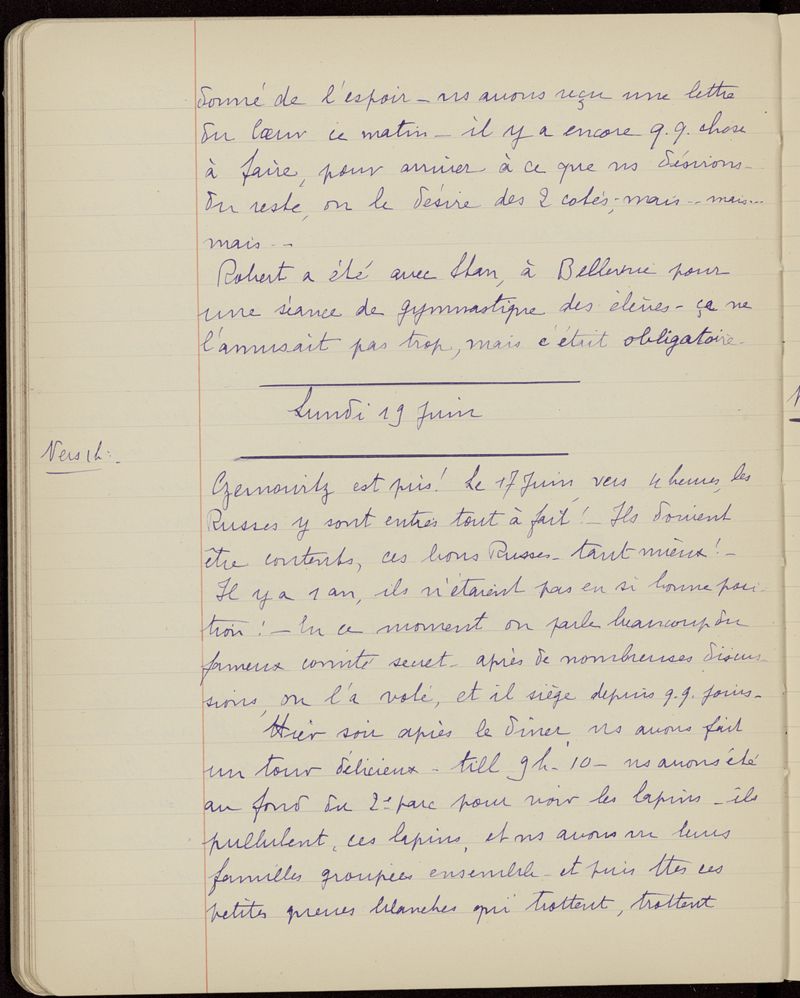 donné de l'espoir - ns avons reçu une lettre
du Cœur ce matin - il y a encore q.q. chose
à faire, pour arriver à ce que ns désirons -
du reste, on le désire des 2 cotés; mais -- mais ---
mais --
Robert a été avec Stan, à Bellevue pour
une séance de gymnastique des élèves - ça ne
l'amusait pas trop, mais c'était obligatoire -
Lundi 19 Juin
Vers 1h: -
Czernowitz est pris! Le 17 Juin, vers 4 heures, les
Russes y sont entrés tout à fait! - Ils doivent
être contents, ces bons Russes - tant mieux! -
Il y a 1 an, ils n'étaient pas en si bonne posi-
tion! - En ce moment on parle beaucoup du
fameux comité secret - après de nombreuses discus-
sions, on l'a voté, et il siège depuis q.q. jours -
Hier soir après le dîner, ns avons fait
un tour délicieux - till 9h. 10 - ns avons été
au fond du 2e parc pour voir les lapins - ils
pullulent, ces lapins, et ns avons vu leurs
familles groupées ensemble - et puis ttes ces
petites queues blanches qui trottent, trottent